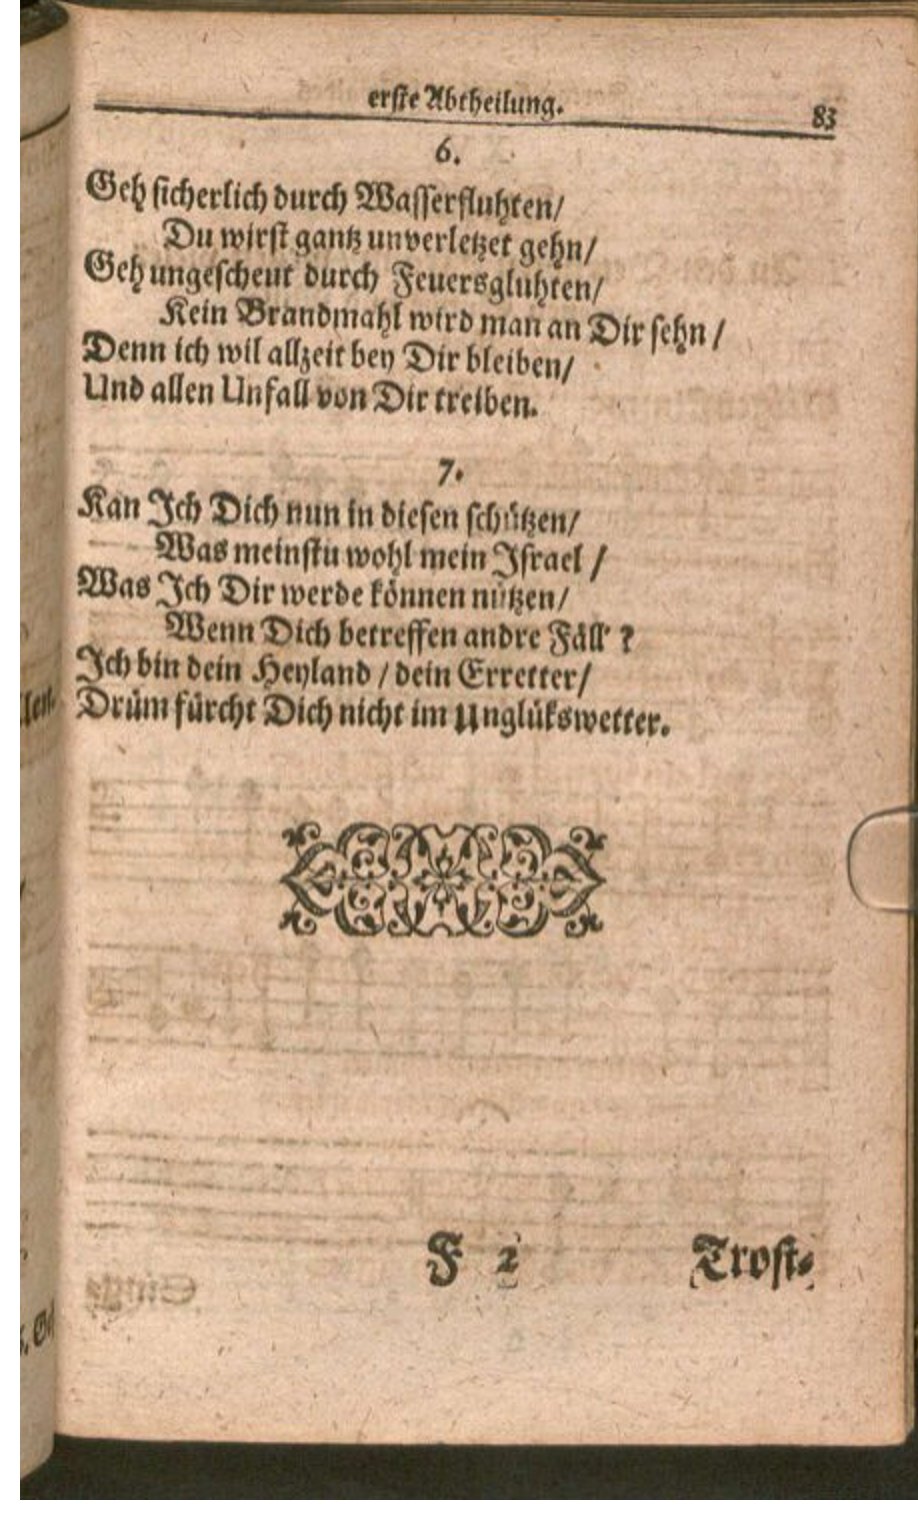 erste Abtheilung.
83
6.
Geh sicherlich durch Wasserfluhten/
Du wirst gantz unverletzet gehn/
Geh ungescheut durch Feuersgluhten/
Kein Brandmahl wird man an Dir sehn/
Denn ich wil allzeit bey Dir bleiben/
Und allen Unfall von Dir treiben.
7.
Kan Ich Dich nun in diesen schützen/
Was meinstu wohl mein Israel/
Was Ich Dir werde können nützen/
Wenn Dich betreffen andre Fäll' ?
Ich bin dein Heyland/dein Erretter/
Drüm fürcht Dich nicht im Unglükswetter.
F 2
Trost-